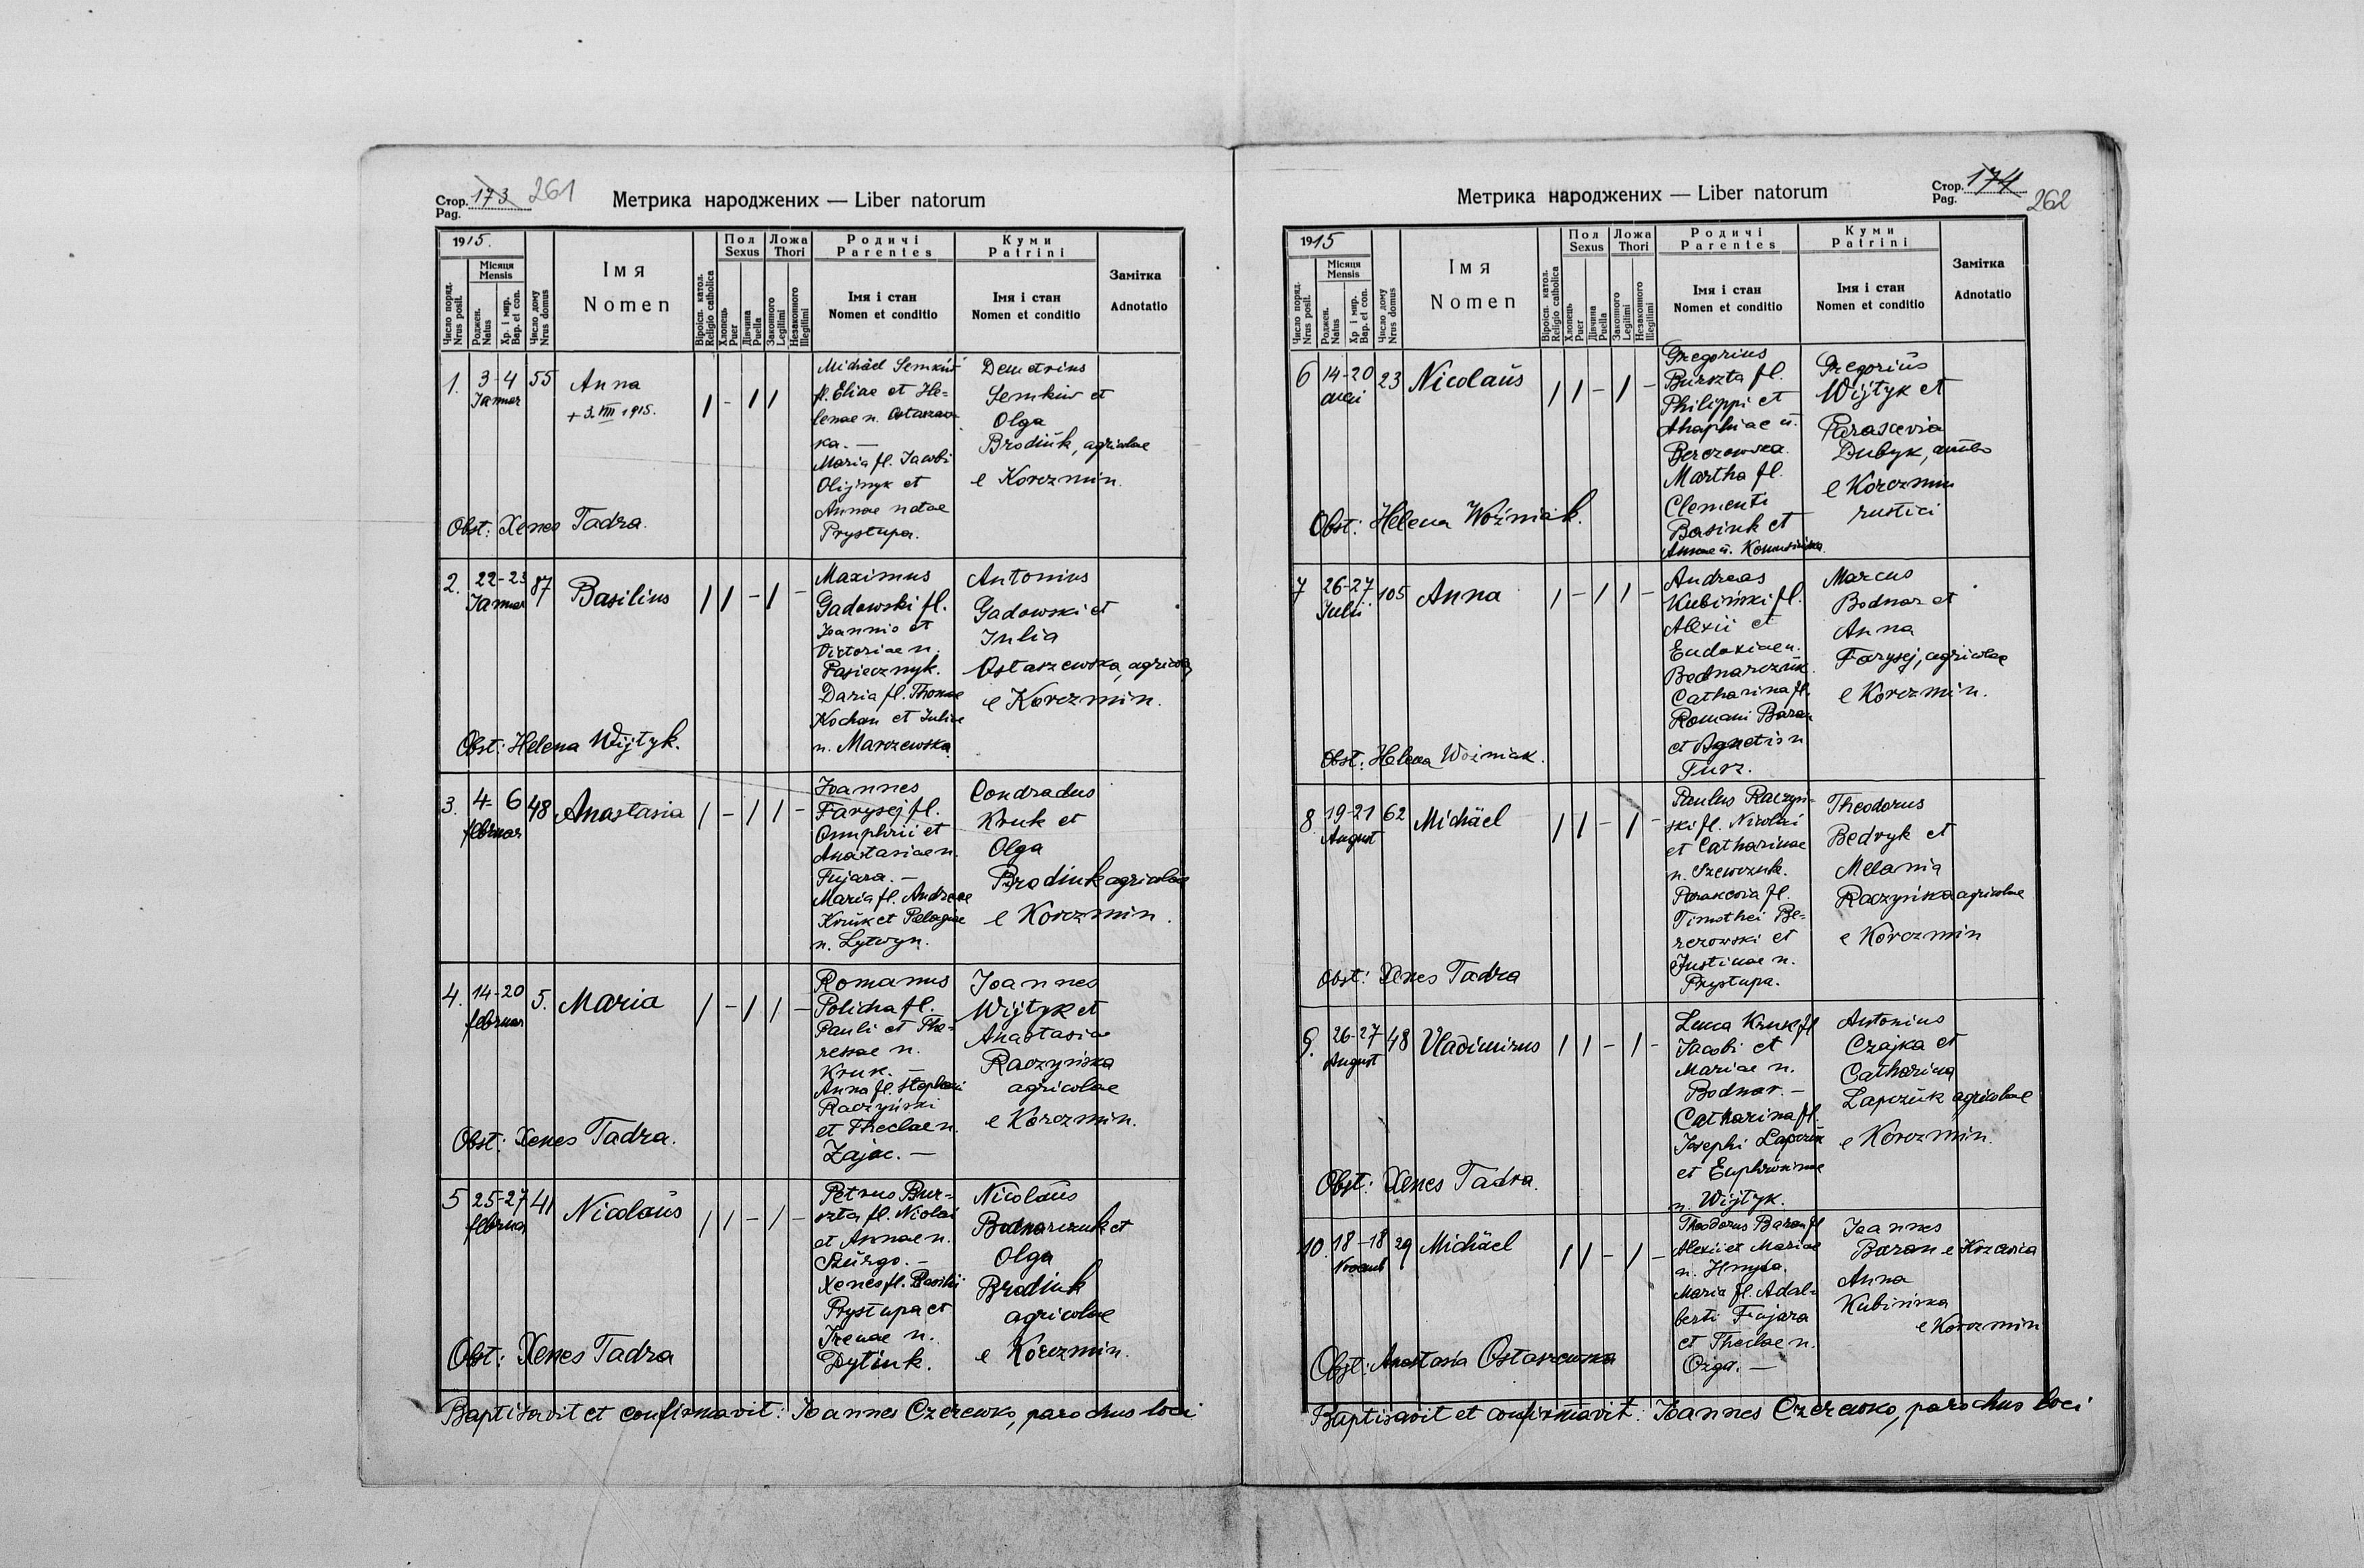 Стор. Pag. 173 261
Метрика народжених — Liber natorum
1915.
Число поряд. Nrus posit.
Місяця Mensis
Роджен. Natus
Хр. і мир. Bap. et con.
Число дому Nrus domus
Імя
Nomen
Віроісп. катол. Religio catholica
Пол Sexus
Хлопець Puer
Дівчина Puella
Ложа Thori
Законного Legitimi
Незаконного Illegitimi
Родичі
Parentes
Імя і стан
Nomen et conditio
Куми
Patrini
Імя і стан
Nomen et conditio
Замітка
Adnotatio
1. 3-4 Januar 55 Anna
+ 3. VIII 1915.
1 - 1 1
Michäel Semkiw
fl. Eliae et He-
lenae n. Ostaszew
ska. —
Maria fl. Jacobi
Olijnyk et
Annae natae
Prystupa.
Demetrius
Semkiw et
Olga
Brodiuk, agricolae
e Korczmin.
Obst: Xenes Tadra.
2. 22-23 Januar 87 Basilius
1 1 - 1 -
Maximus
Gadowski fl.
Joannis et
Victoriae n.
Pasiecznyk.
Daria fl. Thomae
Kochan et Juliae
n. Marczewska
Antonius
Gadowski et
Julia
Ostaszewska, agricolae
e Korczmin.
Obst: Helena Wijtyk.
3. 4-6 februar 48 Anastasia
1 - 1 1 -
Joannes
Farysej fl.
Onuphrii et
Anastasiae n.
Fujara. —
Maria fl. Andreae
Kruk et Pelagiae
n. Lytwyn.
Condradus
Kruk et
Olga
Brodiuk agricolae
e Korczmin.
4. 14-20 februar 5. Maria
1 - 1 1 -
Romanus
Policha fl.
Pauli et The-
resae n.
Kruk. —
Anna fl. Stephani
Raczyński
et Theclae n.
Zając. —
Joannes
Wijtyk et
Anastasia
Raczyńska
agricolae
e Korczmin.
Obst: Xenes Tadra.
5 25-27 februar 41 Nicolaüs
1 1 - 1 -
Petrus Bur-
szta fl. Nicolai
et Annae n.
Xenes fl. Basilii
Prystupa et
Irenae n.
Dytiuk.
Nicolaüs
Bodnarczuk et
Olga
Brodiuk
agricolae
e Korczmin.
Obst: Xenes Tadra
Baptisavit et confirmavit: Joannes Czerewko, parochus loci
Стор. Pag. 174
262
Метрика народжених — Liber natorum
1915
Число поряд. Nrus posit.
Місяця Mensis
Роджен. Natus
Хр. і мир. Bap. et con.
Число дому Nrus domus
Імя
Nomen
Віроісп. катол. Religio catholica
Пол Sexus
Хлопець Puer
Дівчина Puella
Ложа Thori
Законного Legitimi
Незаконного Illegitimi
Родичі
Parentes
Імя і стан
Nomen et conditio
Куми
Patrini
Імя і стан
Nomen et conditio
Замітка
Adnotatio
6 14-20 23 Nicolaüs
1 1 - 1 -
Gregorius
Burszta fl.
Philippi et
Ahaphiae n.
Berezowska
Martha fl.
Clementi
Basiuk et
Annae n.
Gregorius
Wijtyk et
Parascevia
Dubyk, ambo
e Korczmin
rustici
Obst: Helena Woźniak.
7 26-27 Julii 105 Anna
1 - 1 1 -
Andreas
Kubiński fl.
Alexii et
Eudoxiae n.
Bodnarczuk
Catharina fl.
Romani Baran
et Agnetis n
Furz.
Marcus
Bodnar et
Anna
Farysej, agricolae
e Korczmin.
Obst: Helena Woźniak.
8. 19-21 August 62 Michäel
1 1 - 1 -
Paulus Raczyń-
ski fl. Nicolai
et Catharinae
n. Szewczuk.
Parascevia fl.
Timothei Be-
rezowski et
Justinae n.
Prystupa.
Theodorus
Bedryk et
Melania
Raczyńska agricolae
e Korczmin
Obst: Xenes Tadra
9. 26-27 August 48 Vladimirus
1 1 - 1 -
Luca Kruk fl
Jacobi et
Mariae n.
Bodnar. —
Catharina fl.
Josephi Lapczuk
et Euphrosinae
n. Wijtyk.
Antonius
Czajka et
Catharina
Lapczuk agricolae
e Korczmin.
Obst: Xenes Tadra.
10. 18-18 Novemb 29 Michäel
1 1 - 1 -
Theodorus Baran fl
Alexii et Mariae
n. Hnyda.
Maria fl. Adal-
berti Fujara
et Theclae n.
Ożga. —
Joannes
Baran e
Anna
Kubińska
e Korczmin
Obst: Anastasia Ostaszewska
Baptisavit et confirmavit: Joannes Czerewko, parochus loci